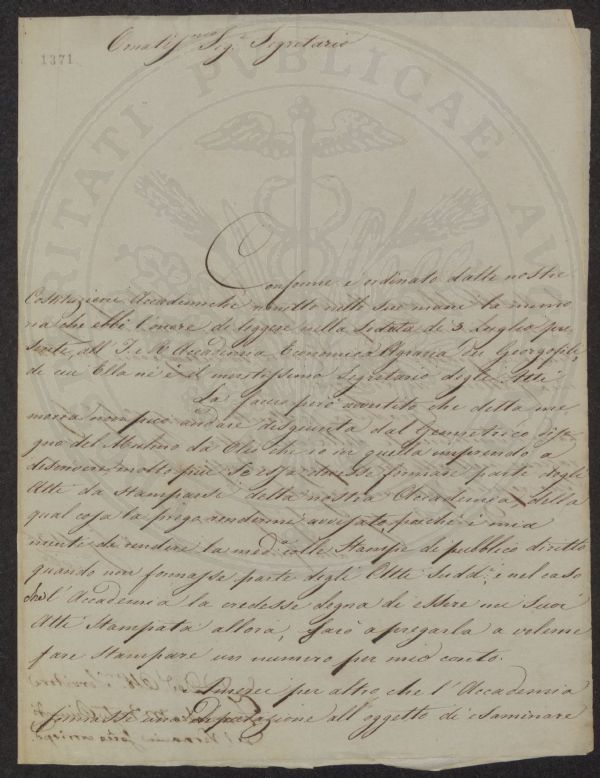 Ornatiss.mo Sig.r Segretario
1371
PUBLICAE
Conforme è ordinato dalle nostre
Costituzioni Accademiche rimetto nelle sue mani la memo
ria che ebbi l'onore di leggere nella seduta de 3 Luglio pre
sente, all' I. e R. Accademia Economica Agraria dei Georgofili,
di cui Ella ne è il meritissimo Segretario degli Atti.
La faccio però avvertito che detta me
moria non può andare disgiunta dal Geometrico dise
gno del Mulino da Olio che io in quella imprendo a
descrivere, molto più se essa dovesse formare parte degli
Atti da stamparsi della nostra Accademia, della
qual cosa la prego rendermi avvisato, poiché è mia
mente di rendere la med.a colle Stampe di pubblico diritto
quando non formasse parte degli Atti sudd.i e nel caso
che l'Accademia la credesse degna di essere nei suoi
Atti Stampata allora, sarò a pregarla a volerne
fare stampare un numero per mio conto.
per altro che l'Accademia
una Deputazione all'oggetto di esaminare